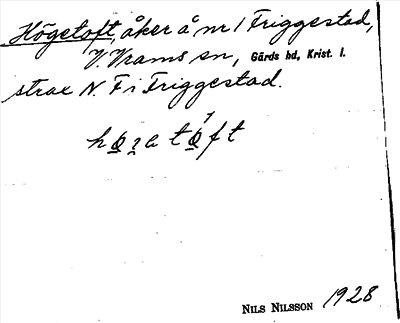 Högetoft åker å nr 1 Friggestad,
V. Vrams sn, Gärds hd, Krist. l.
strax N. F i Friggestad.
NILS NILSSON 1928